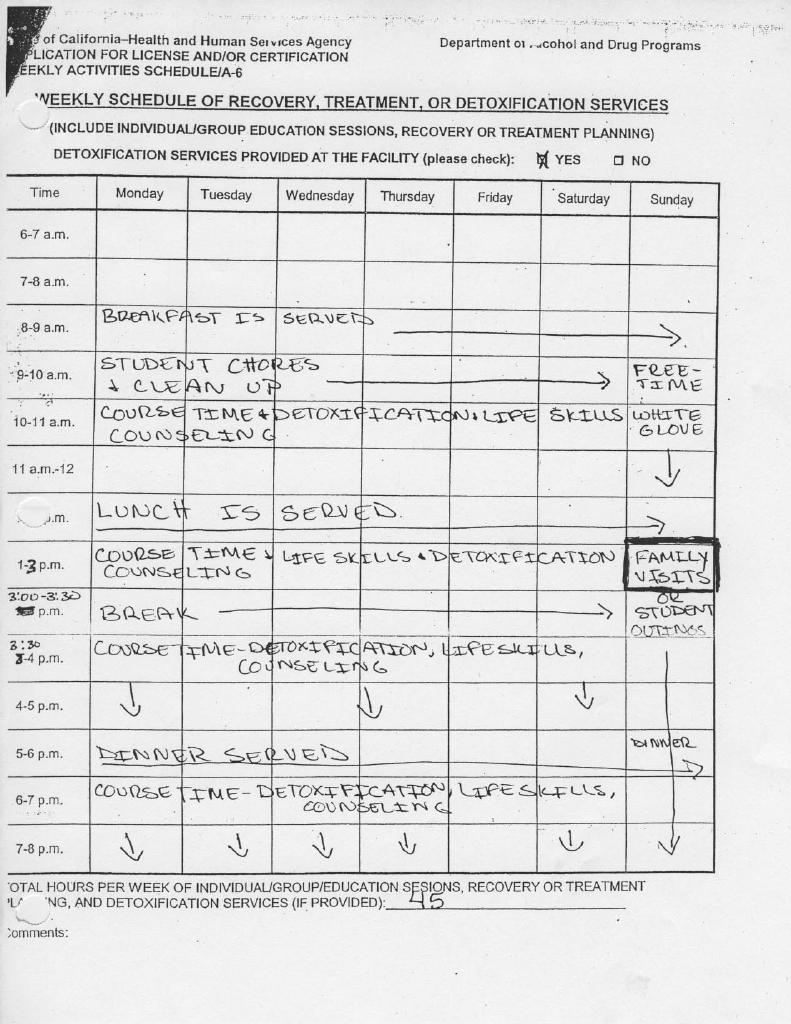 of California–Health and Human Services Agency
Department of Alcohol and Drug Programs
PLICATION FOR LICENSE AND/OR CERTIFICATION
EEKLY ACTIVITIES SCHEDULE/A-6
WEEKLY SCHEDULE OF RECOVERY, TREATMENT, OR DETOXIFICATION SERVICES
(INCLUDE INDIVIDUAL/GROUP EDUCATION SESSIONS, RECOVERY OR TREATMENT PLANNING)
DETOXIFICATION SERVICES PROVIDED AT THE FACILITY (please check): ☒ YES ☐ NO
Time Monday Tuesday Wednesday Thursday Friday Saturday Sunday
6-7 a.m.
7-8 a.m.
8-9 a.m. BREAKFAST IS SERVED →
9-10 a.m. STUDENT CHORES & CLEAN UP → FREE-TIME
10-11 a.m. COURSE TIME & DETOXIFICATION & LIFE SKILLS COUNSELING WHITE GLOVE
11 a.m.-12 ↓
p.m. LUNCH IS SERVED. →
1-3 p.m. COURSE TIME & LIFE SKILLS & DETOXIFICATION COUNSELING FAMILY VISITS
3:00-3:30 p.m. BREAK → OR STUDENT OUTINGS
3:30
3-4 p.m. COURSE TIME-DETOXIFICATION, LIFE SKILLS, COUNSELING
4-5 p.m. ↓ ↓ ↓
5-6 p.m. DINNER SERVED → DINNER
6-7 p.m. COURSE TIME-DETOXIFICATION, LIFE SKILLS, COUNSELING
7-8 p.m. ↓ ↓ ↓ ↓ ↓ ↓
OTAL HOURS PER WEEK OF INDIVIDUAL/GROUP/EDUCATION SESIONS, RECOVERY OR TREATMENT
NG, AND DETOXIFICATION SERVICES (IF PROVIDED): 45
Comments: